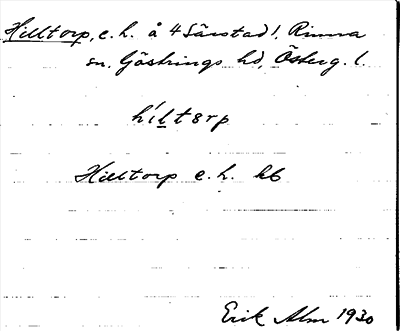 Hilltorp, e. h. å 4 Särstad!, Rinna
sn. Göstrings hd, Österg. l.
hílterp
Hilltorp e. h. kb
Erik Alm 1930